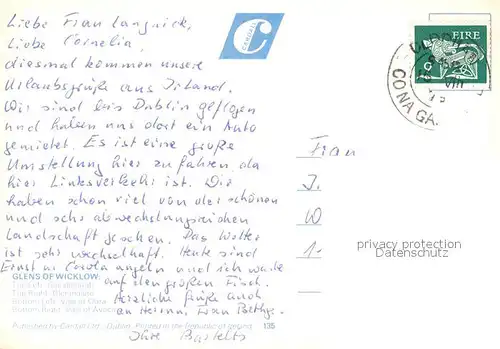 Liebe Frau Langnick,
Liebe Cornelia,
diesmal kommen unsere
Urlaubsgrüße aus Irland.
Wir sind bis Dublin geflogen
und haben uns dort ein Auto
gemietet. Es ist eine große
Umstellung hier zu fahren, da
hier Linksverkehr ist. Wir
haben schon viel von der schönen
und sehr abwechslungsreichen
Landschaft gesehen. Das Wetter
ist sehr wechselhaft. Heute sind
Ernst u. Carola angeln und ich warte
auf den großen Fisch.
Herzliche Grüße auch
an Herrn u. Frau
Ihre Bartelts
GLENS OF WICKLOW:
Top Left:
Top Right: Glenmalure
Bottom Left: View of Clara
Bottom Right: Vale of Avoca
Published by Cardall Ltd., Dublin. Printed in the Republic of Ireland 135
CARDALL
C
EIRE
CO NA GA.
VIII
Frau
I.
W
1.
privacy protection
Datenschutz